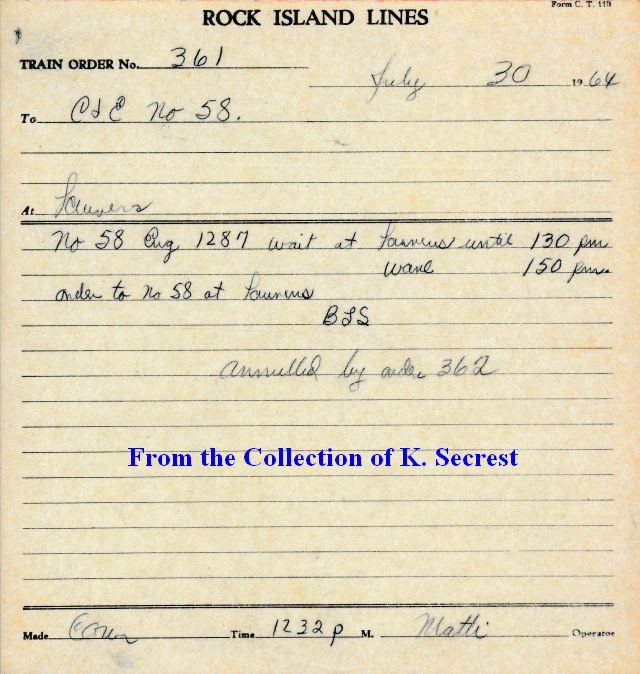 Form C. T. 110
ROCK ISLAND LINES
TRAIN ORDER No. 361
July 30 1964
To C & E No 58.
At Laurens
No 58 Eng 1287 wait at Laurens until 130 pm
150 pm.
order to No 58 at Laurens
annulled by order 362
From the Collection of K. Secrest
Made Time 1232 p M. Operator